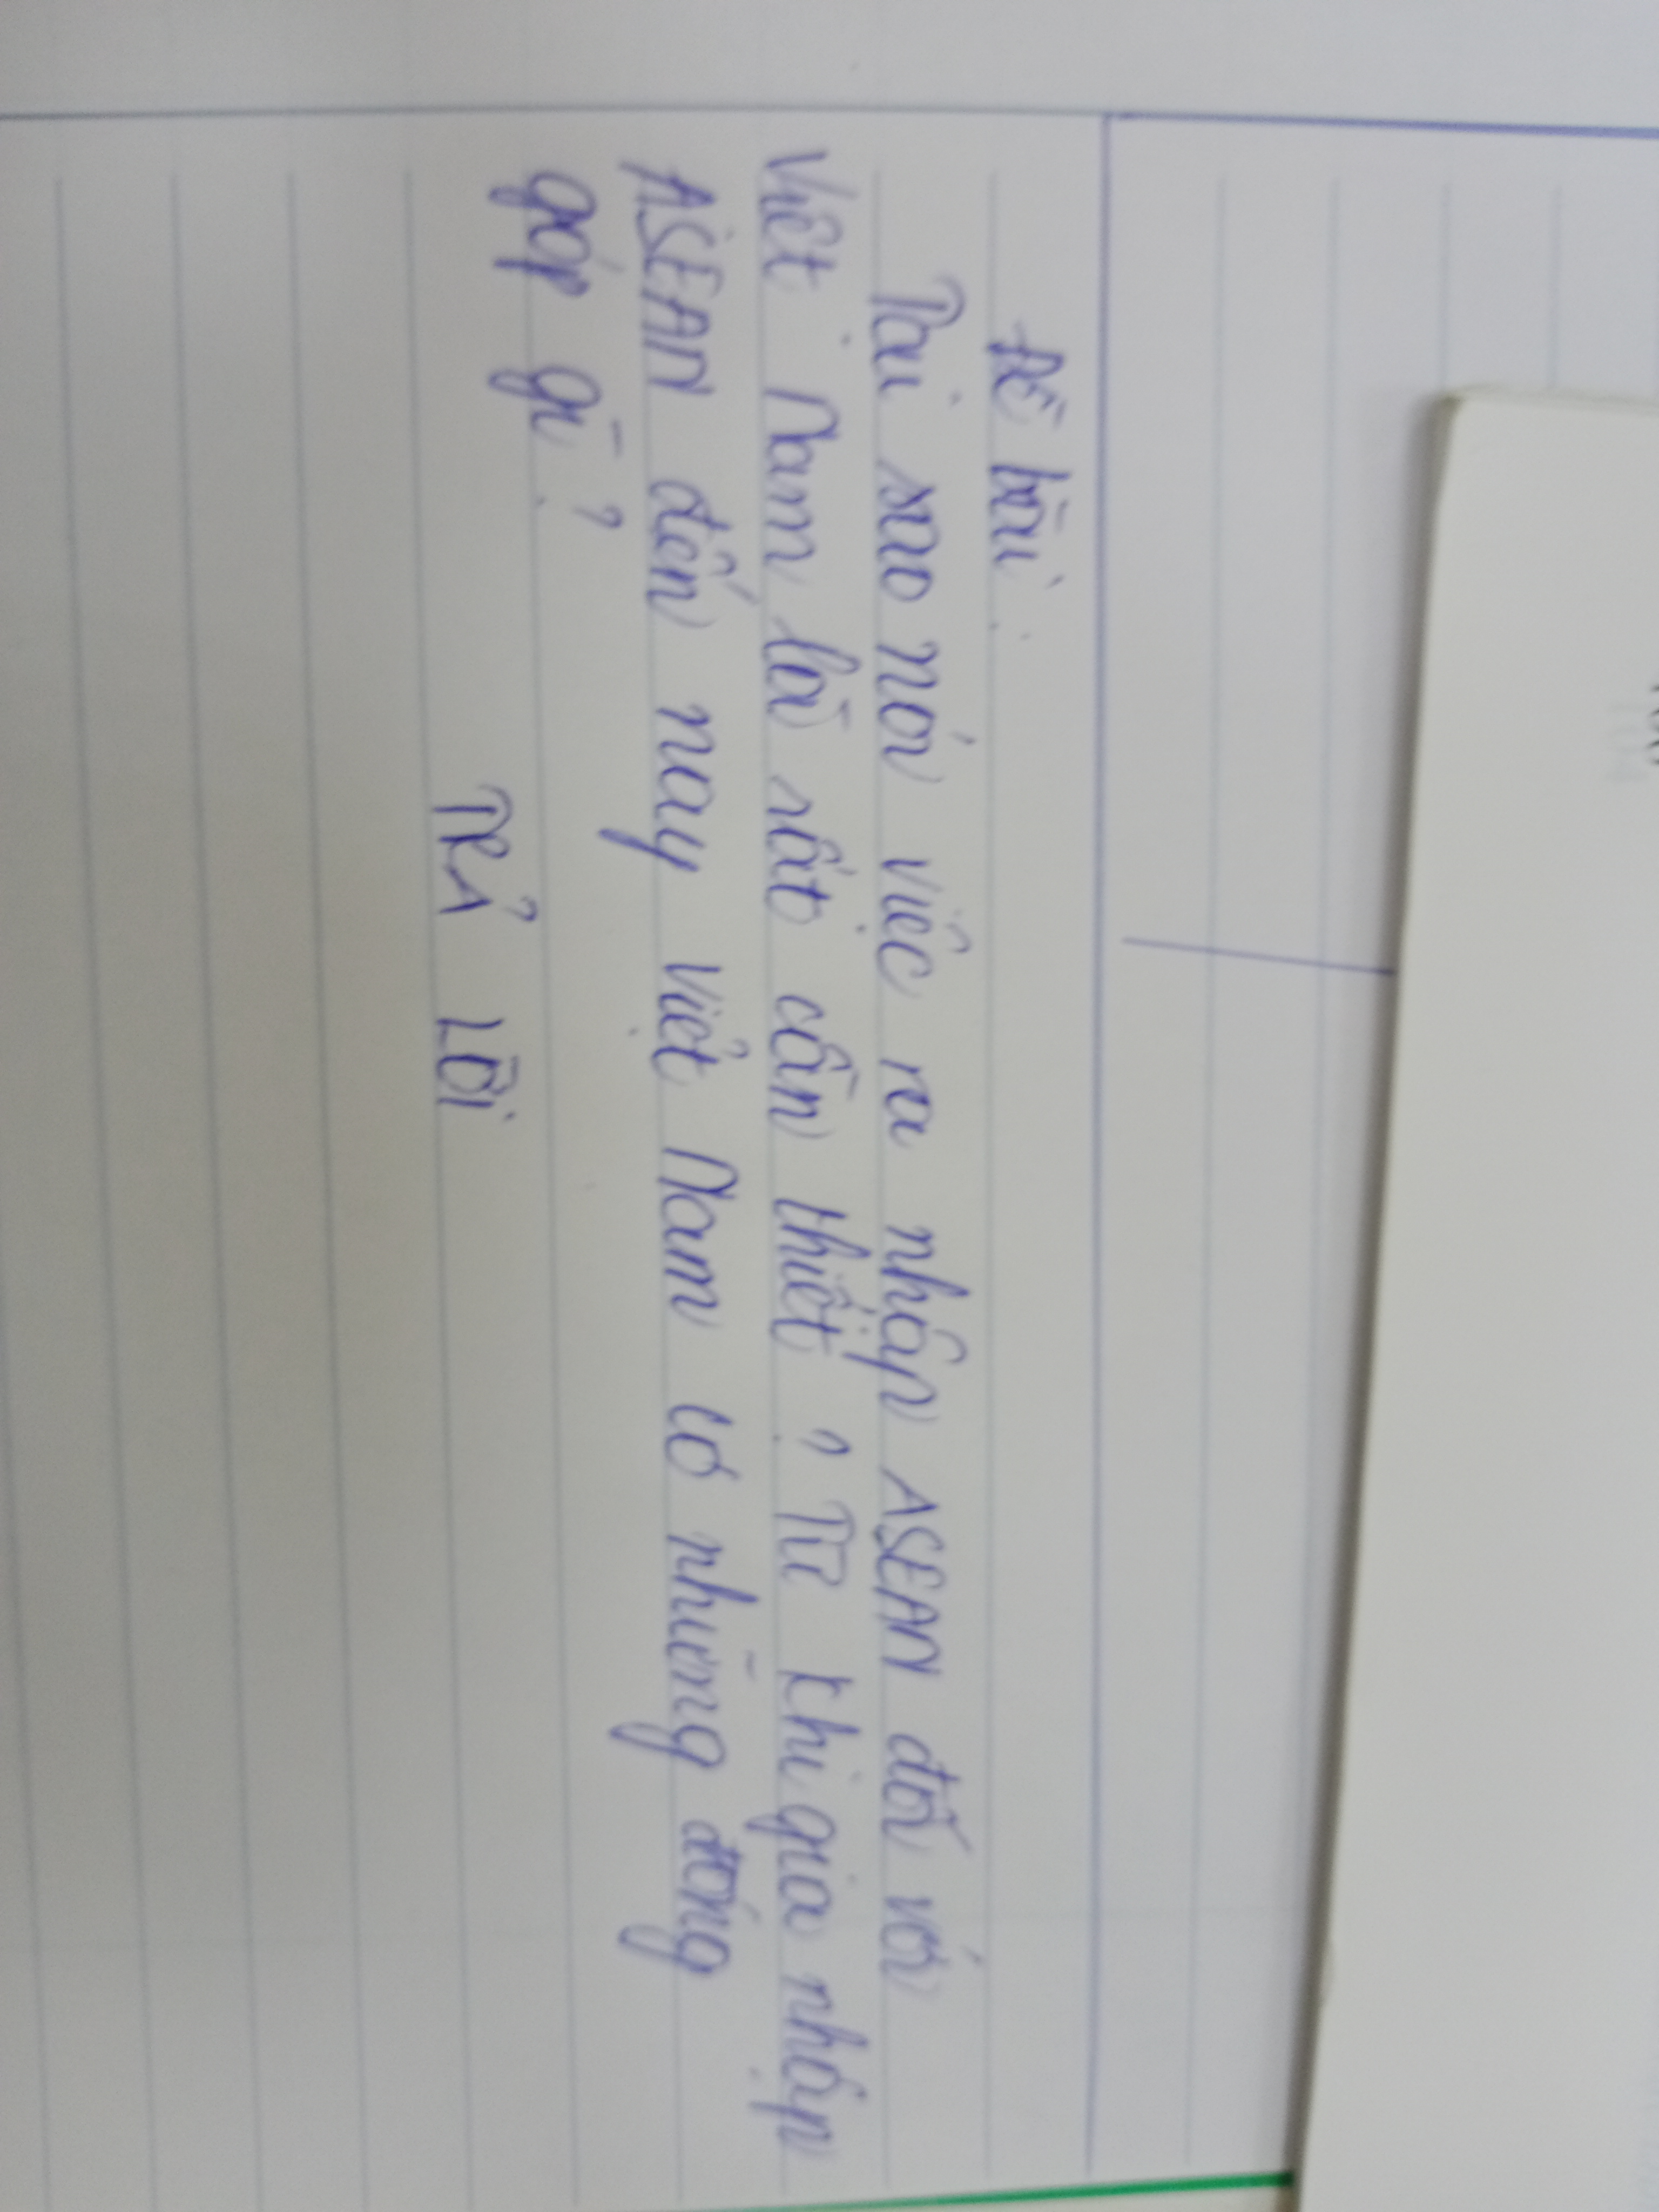 Đề bài:
Tại sao nói việc ra nhập ASEAN đối với
Việt Nam là rất cần thiết? Từ khi gia nhập
ASEAN đến nay Việt Nam có những đóng
góp gì?
TRẢ LỜI